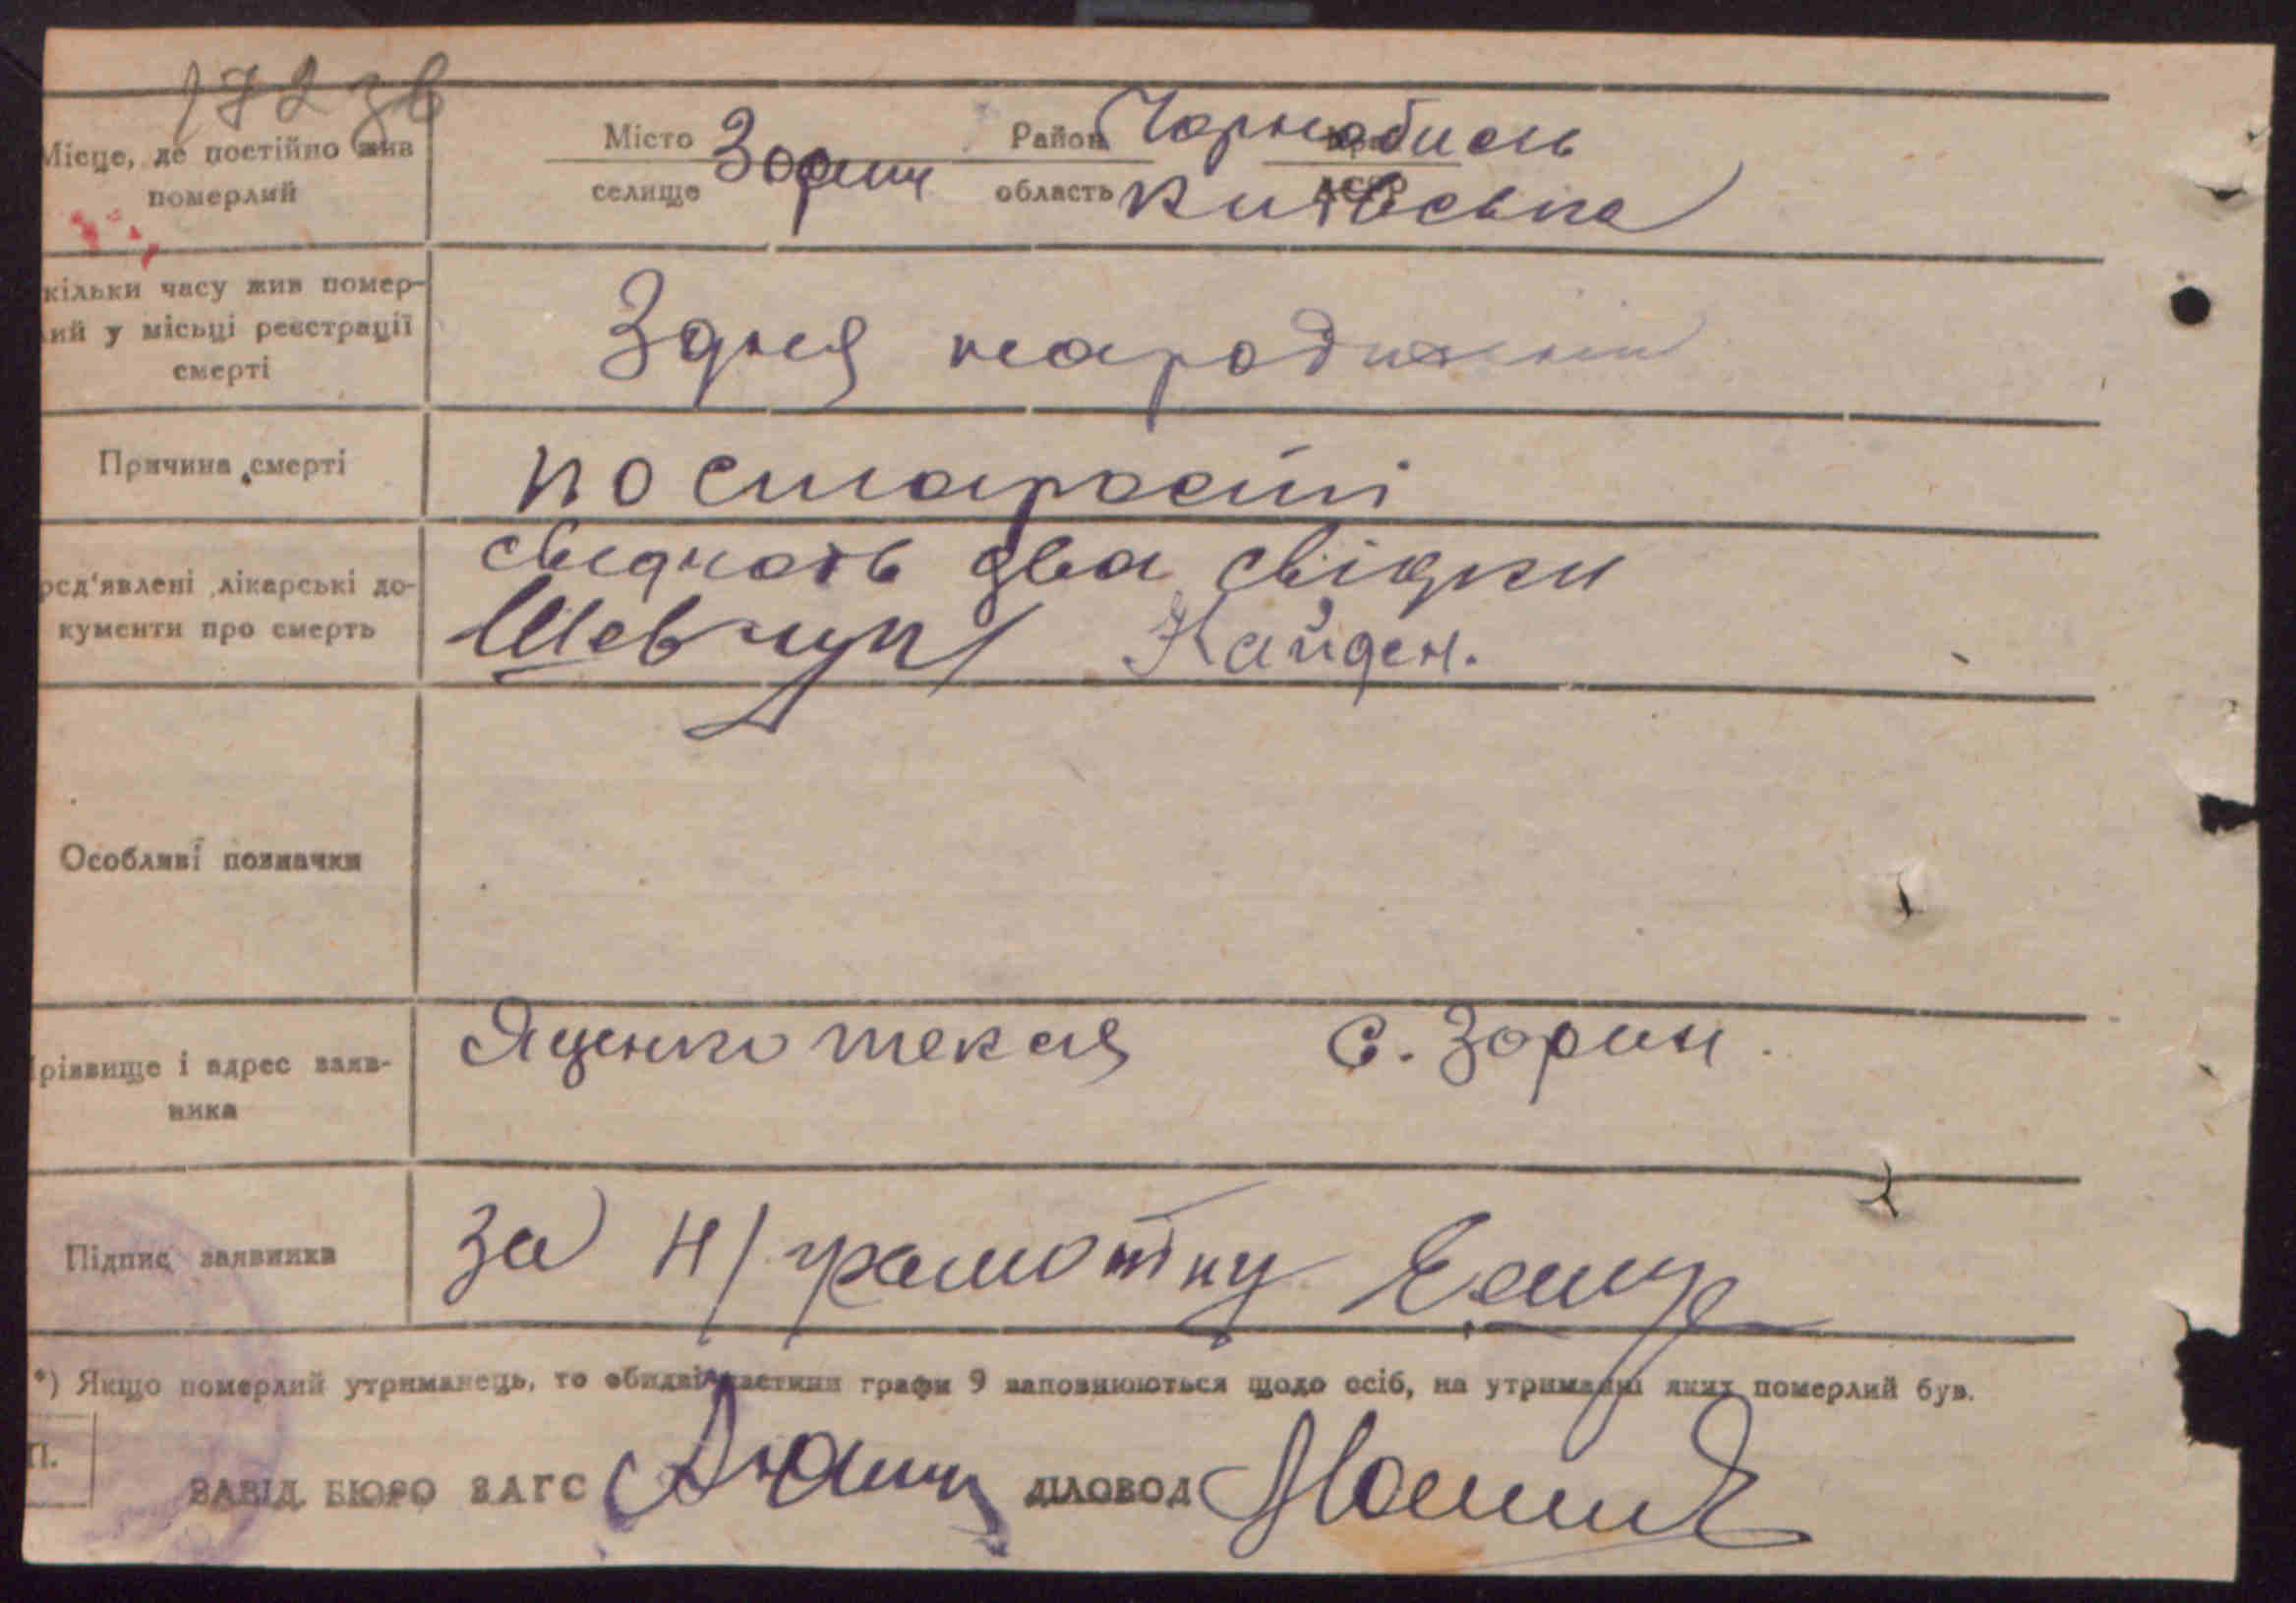 172 зв
Місце, де постійно жив
померлий
Місто
селище
Зорин
Район
область
Чорнобиль
Київська
кільки часу жив помер-
ий у місьці реєстрації
смерті
З дня народження
Причина смерті
по старості
ред'явлені лікарські до-
кументи про смерть
свідчать два свідки
Шевчук Найден.
Особливі позначки
різвище і адрес заяв-
ника
Яценко текля с. Зорин.
Підпис заявника
за н/грамотну
*) Якщо померлий утриманець, то обидві частини графи 9 заповнюються щодо осіб, на утриманні яких померлий був.
П.
ЗАВІД. БЮРО ЗАГС ДІЛОВОД